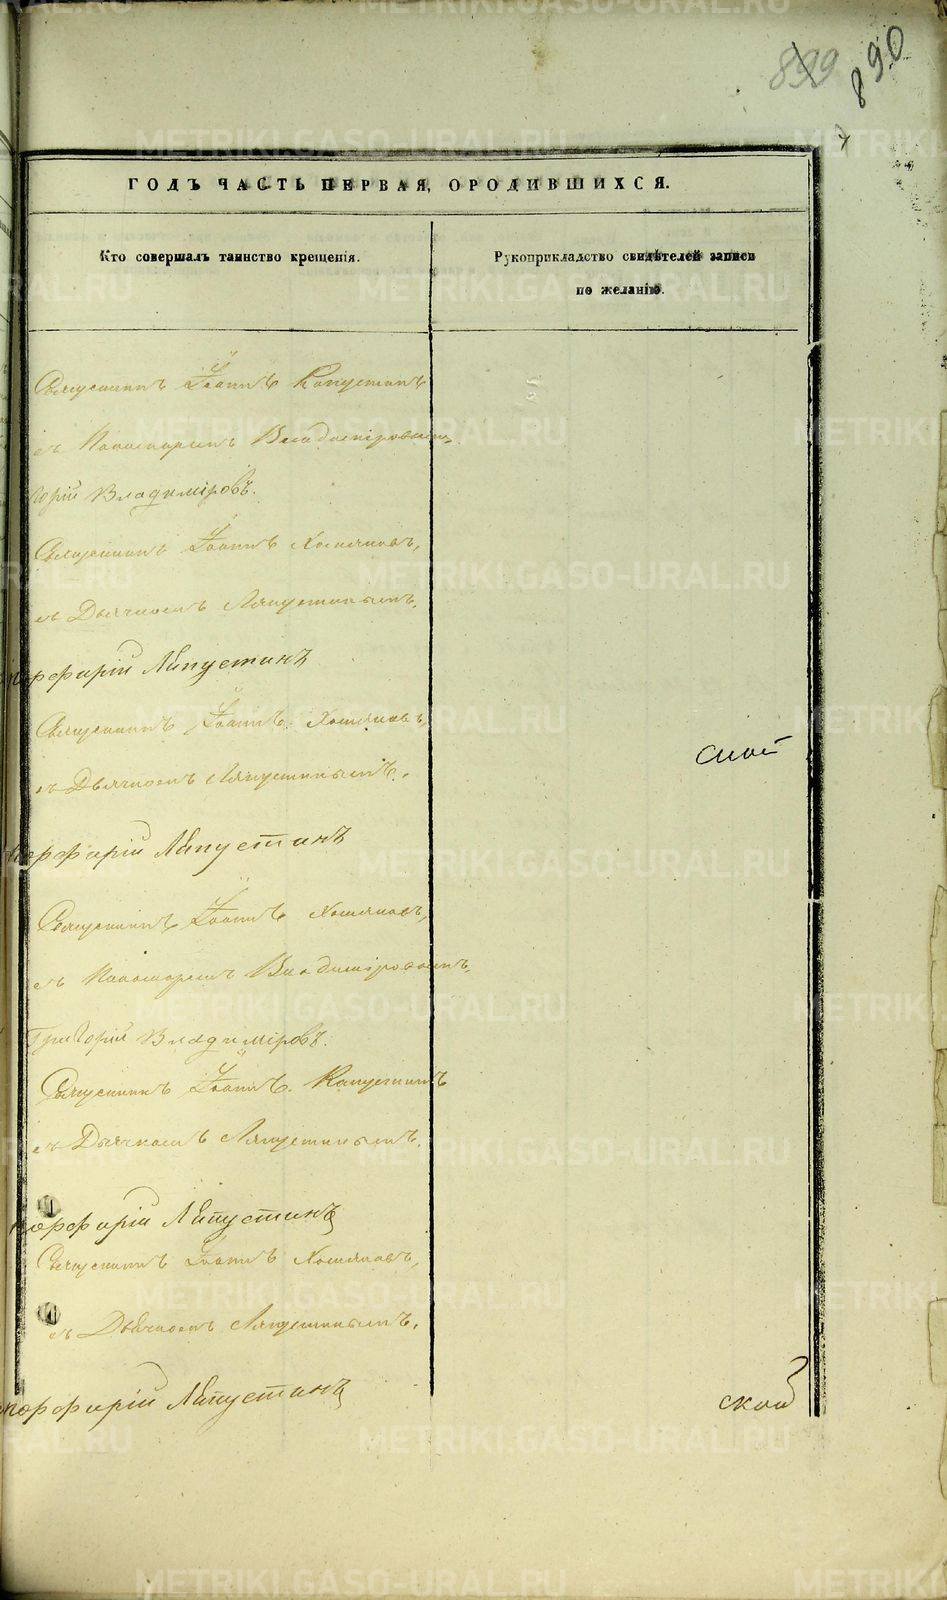 899 890
ГОДЪ ЧАСТЬ ПЕРВАЯ, ОРОДИВШИХСЯ.
Кто совершалъ таинство крещенія.
Рукоприкладство свидѣтелей записи
по желанію.
Священникъ Іоаннъ Капустинъ
съ Пономаремъ Владиміровымъ,
Григорій Владиміровъ.
Священникъ Іоаннъ Хомяковъ,
съ Дьячкомъ Ляпустинымъ.
Порфирій Ляпустинъ
Священникъ Іоаннъ Хомяковъ,
съ Дьячкомъ Ляпустинымъ.
Порфирій Ляпустинъ
Священникъ Іоаннъ Хомяковъ,
съ Пономаремъ Владиміровымъ.
Григорій Владиміровъ.
Священникъ Іоаннъ Капустинъ
съ Дьячкомъ Ляпустинымъ.
Порфирій Ляпустинъ
Священникъ Іоаннъ Хомяковъ,
съ Дьячкомъ Ляпустинымъ.
Порфирій Ляпустинъ
ской
METRIKI.GASO-URAL.RU